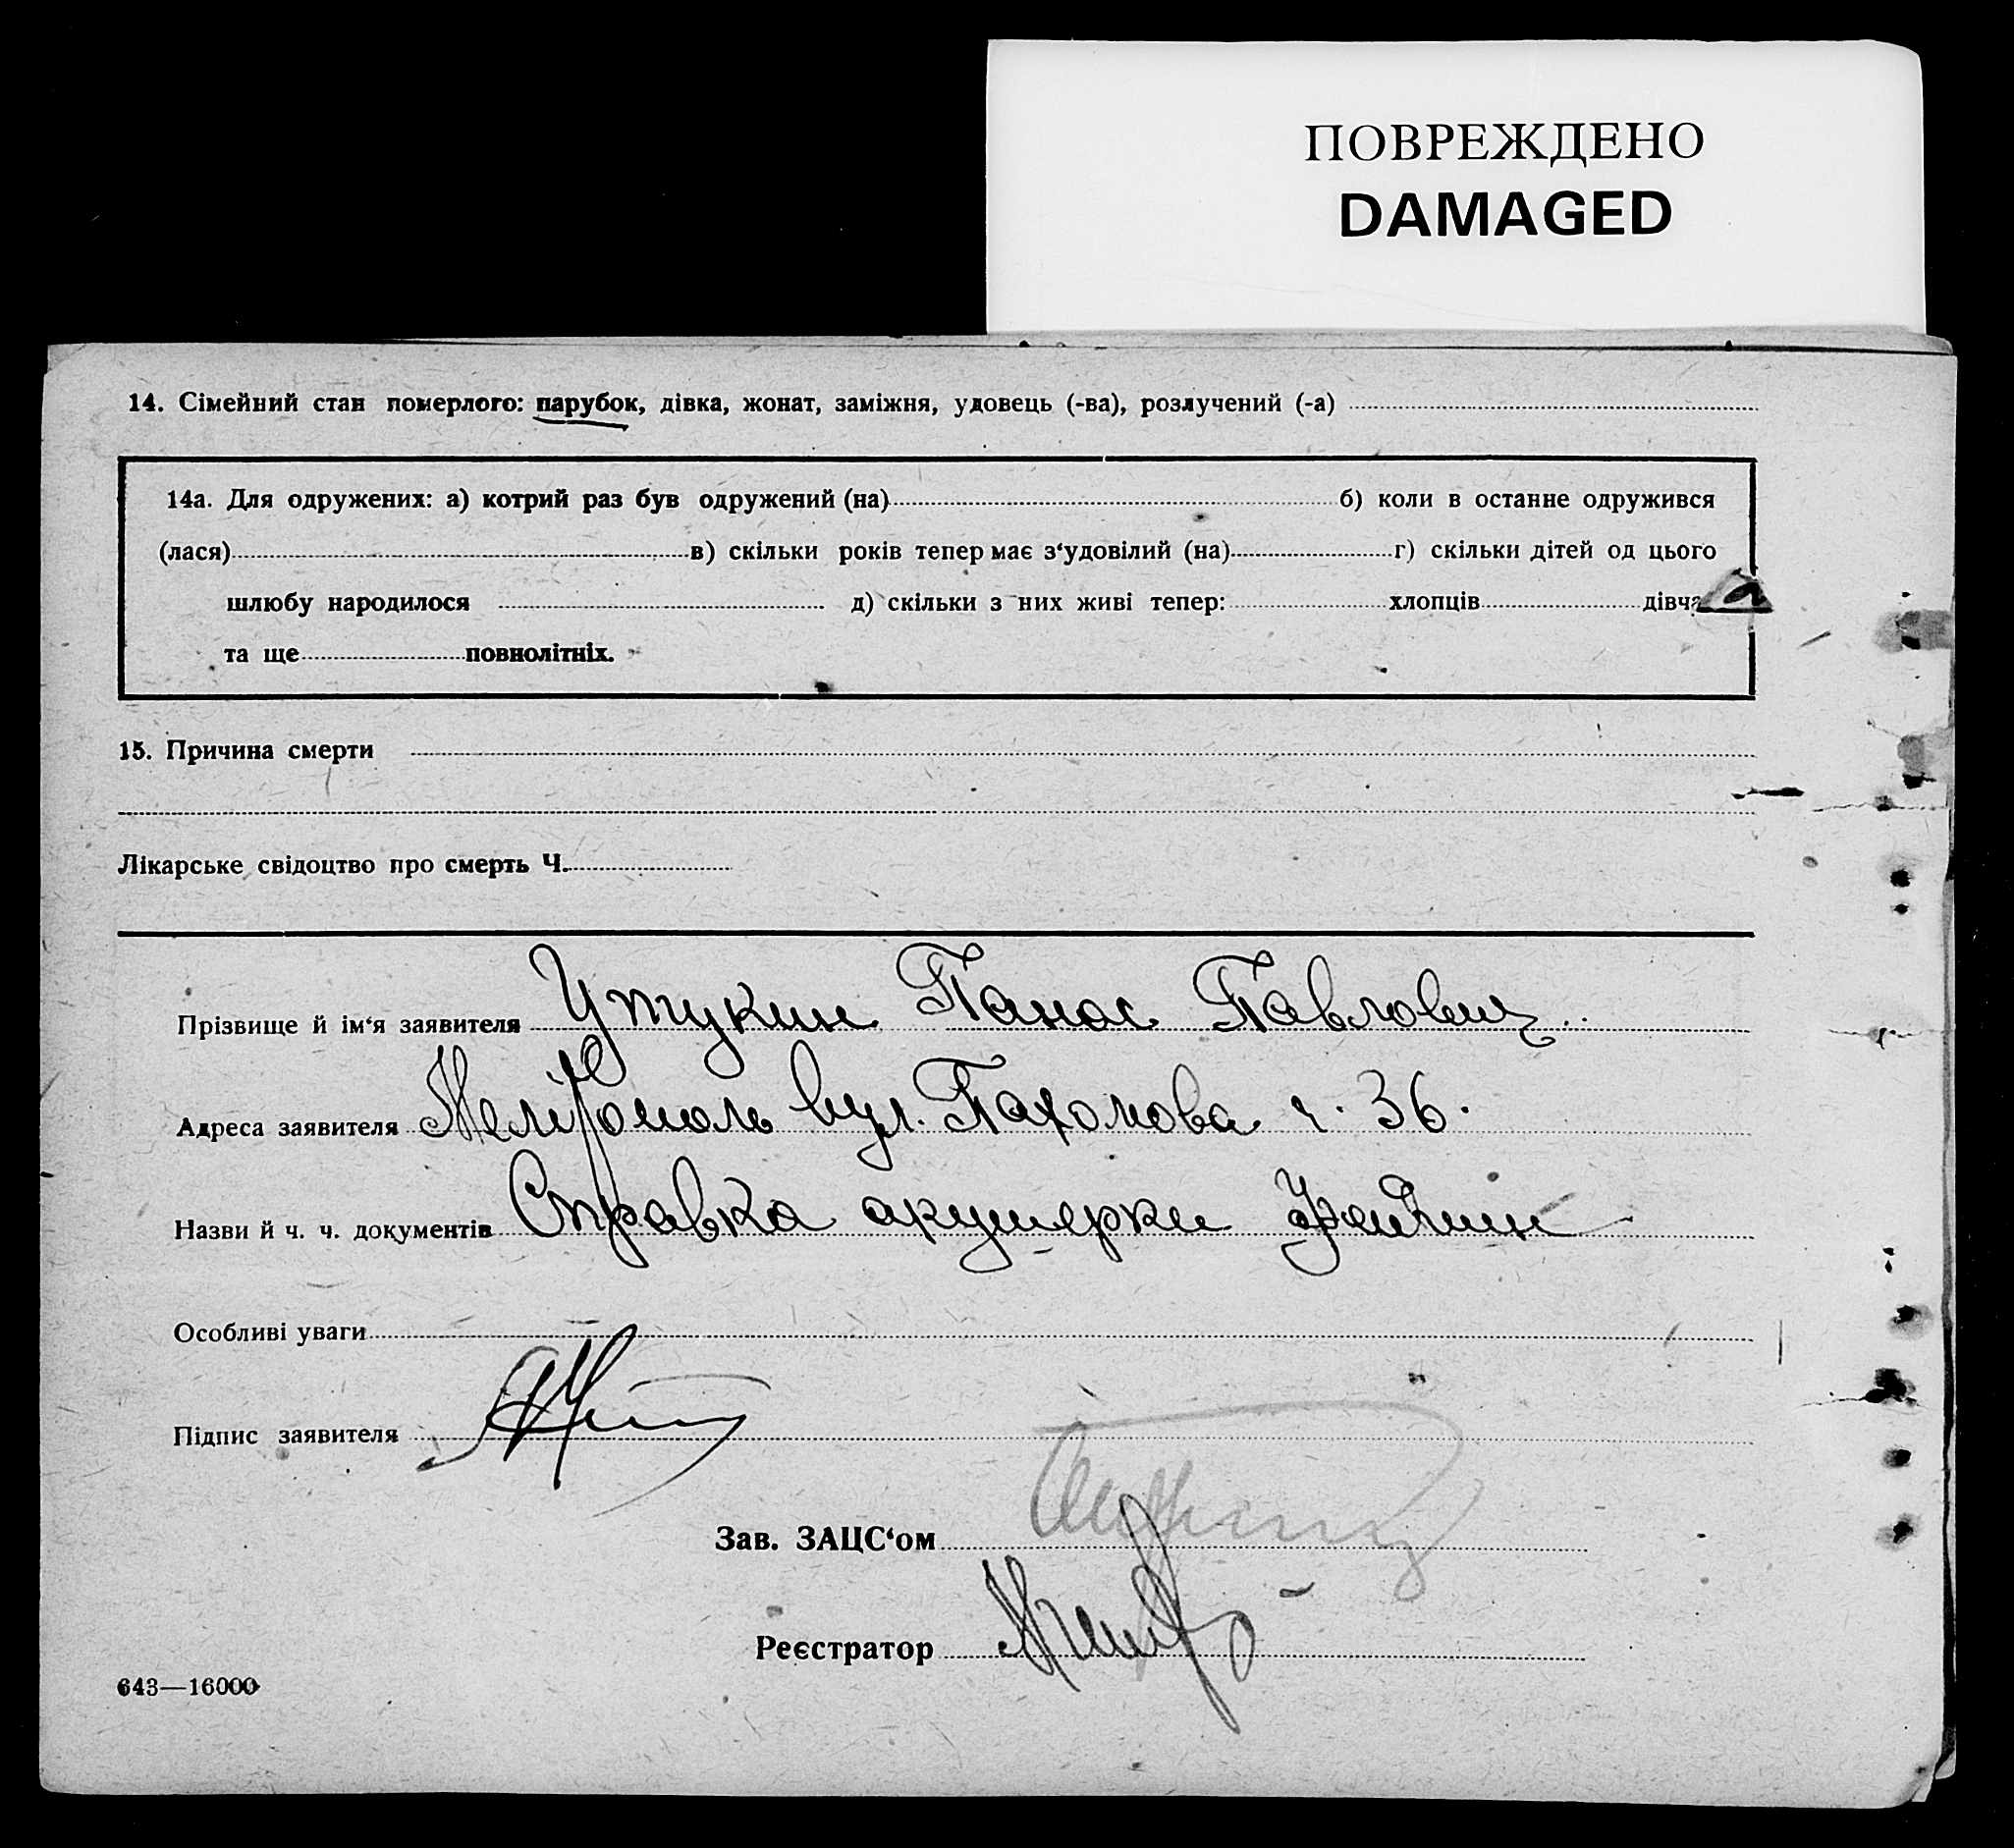 ПОВРЕЖДЕНО
DAMAGED
14. Сімейний стан померлого: парубок, дівка, жонат, заміжня, удовець (-ва), розлучений (-а)
14а. Для одружених: а) котрий раз був одружений (на) б) коли в останнє одружився
(лася) в) скільки років тепер має з‘удовілий (на) г) скільки дітей од цього
шлюбу народилося д) скільки з них живі тепер: хлопців дівча
та ще повнолітніх.
15. Причина смерти
Лікарське свідоцтво про смерть Ч.
Прізвище й ім‘я заявителя Утукин Панас Павлович
Адреса заявителя Мелітополь вул. Пахомова ч. 36.
Назви й ч. ч. документів Справка акушерки
Особливі уваги
Підпис заявителя
Зав. ЗАЦС‘ом
Реєстратор
643—16000